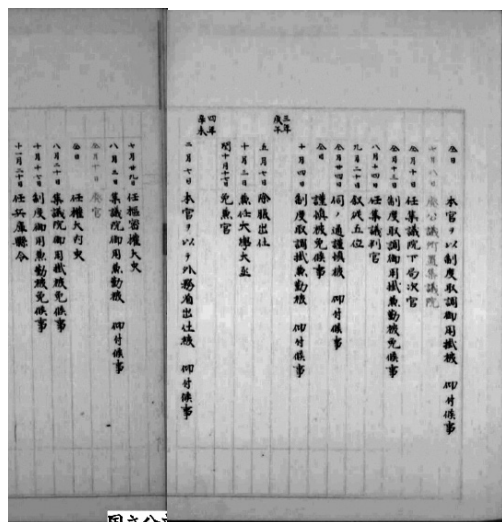 仝日 本官ヲ以制度取調御用掛被 仰付候事
七月八日 廃公議所置集議院
仝月十日 任集議院下局次官
仝月十三日 制度取調御用掛兼勤被免候事
八月十四日 任集議判官
九月二十日 叙従五位
仝月廿四日 伺ノ通謹慎被 仰付候事
仝日 謹慎被免候事
十月四日 制度取調掛兼勤被 仰付候事
三年
庚午
五月七日 除服出仕
十月三日 兼任大學大丞
閏十月十七日 免兼官
四年
辛未
二月七日 本官ヲ以テ外務省出仕被 仰付候事
七月廿九日 任樞密權大史
八月五日 集議院御用兼勤被 仰付候事
仝月十日 廃官
仝日 任權大内史
八月二十日 集議院御用掛被免候事
十月十七日 制度御用兼勤被免候事
十一月二十日 任兵庫縣令